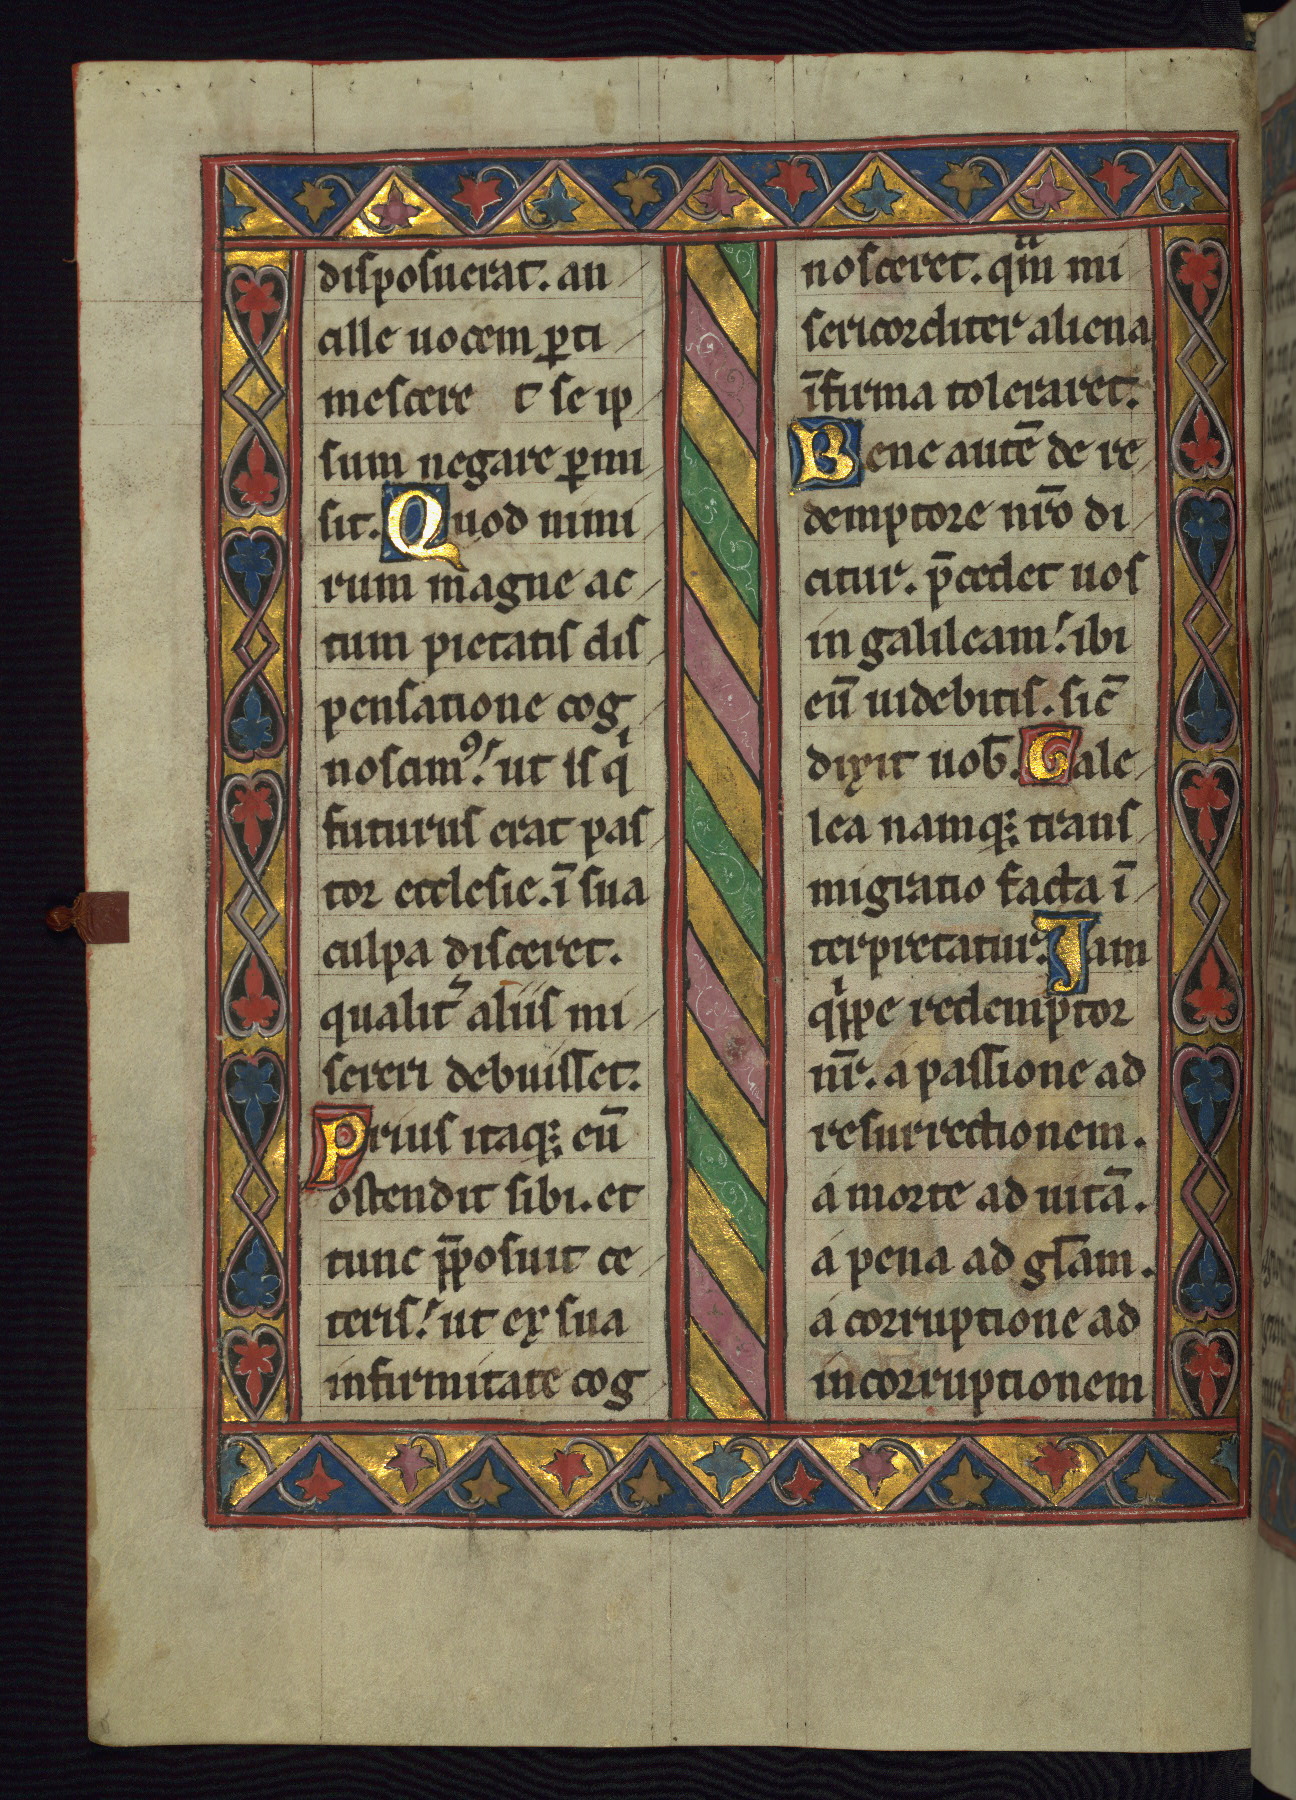 disposuerat. an
cille uocem p̲ti
mescere t se ip
sum negare p̲mi
sit. Quod nimi
rum magne ac
tum pietatis dis
pensatione cog
noscimꝰ. ut is qͥ
futurus erat pas
tor ecclesie. ī sua
culpa disceret.
qualit͛ aliis mi
sereri debuisset.
Prius itaq; eū
ostendit sibi. et
tunc p̄posuit ce
teris. ut ex sua
infirmitate cog
nosceret. qm̄ mi
sericorditer aliena
īfirma toleraret.
Bene autē de re
demptore nr̄o di
citur. p̄cedet uos
in galileam. ibi
eū uidebitis. sic̄
dixit uob̄. Gale
lea namq; trans
migratio facta ī
terpretatur. Iam
qͥppe redemptor
nr̄. a passione ad
resurrectionem.
a morte ad uitā.
a pena ad gl̄am.
a corruptione ad
incorruptionem